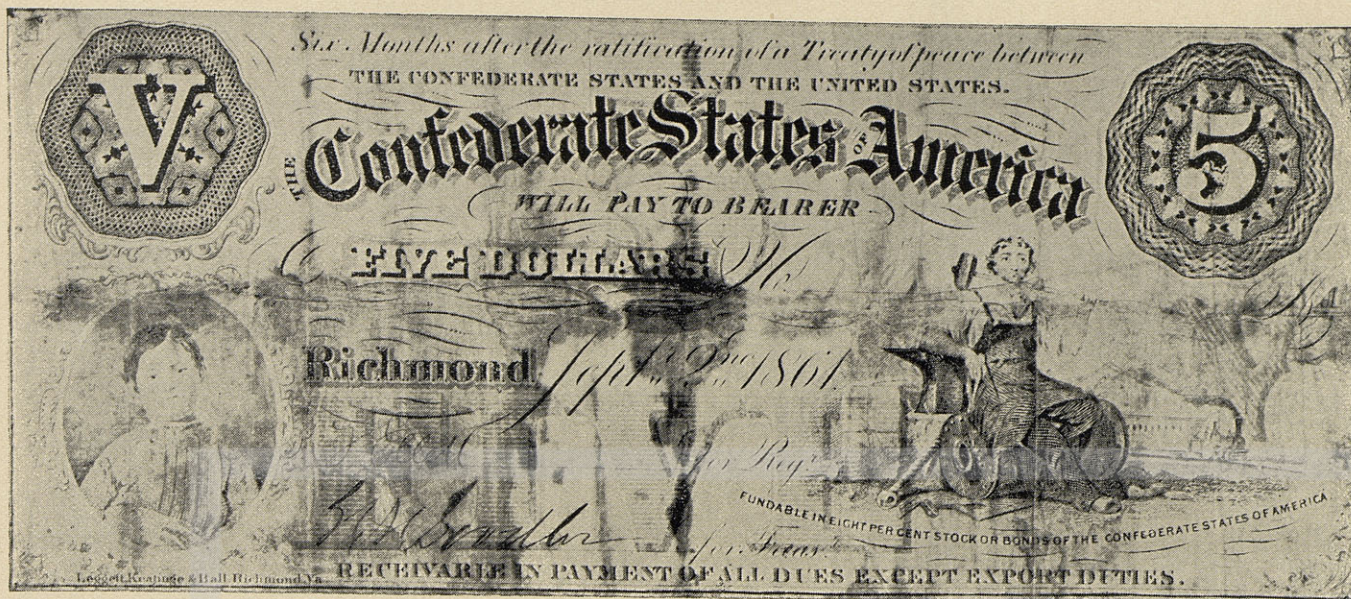 Six Months after the ratification of a Treaty of peace between
THE CONFEDERATE STATES AND THE UNITED STATES.
V
THE Confederate States OF America
5
WILL PAY TO BEARER
FIVE DOLLARS
Richmond Sept. 2nd 1861
for Regr
for Treasr
FUNDABLE IN EIGHT PER CENT STOCK OR BONDS OF THE CONFEDERATE STATES OF AMERICA
Leggett, Keatinge & Ball, Richmond, Va
RECEIVABLE IN PAYMENT OF ALL DUES EXCEPT EXPORT DUTIES.